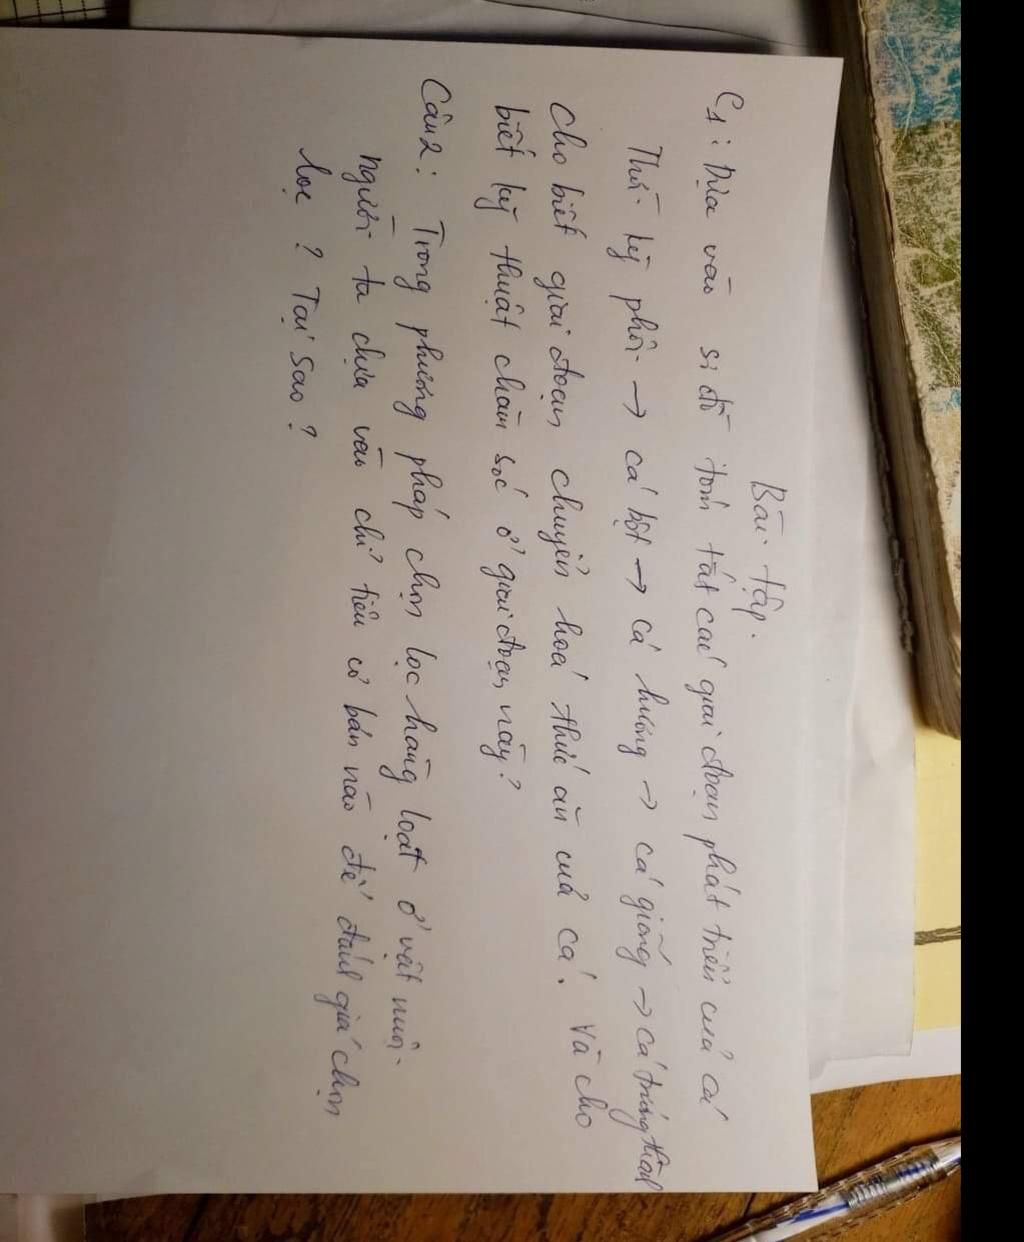 Bài tập.
C1: Dựa vào sơ đồ tóm tắt các giai đoạn phát triển của cá
Thời kỳ phôi → cá bột → cá hương → cá giống → cá trưởng thành
Cho biết giai đoạn chuyển hoá thức ăn của cá. Và cho
biết kỹ thuật chăm sóc ở giai đoạn này?
Câu 2: Trong phương pháp chọn lọc hàng loạt ở vật nuôi.
người ta dựa vào chỉ tiêu cơ bản nào để đánh giá chọn
lọc? Tại sao?